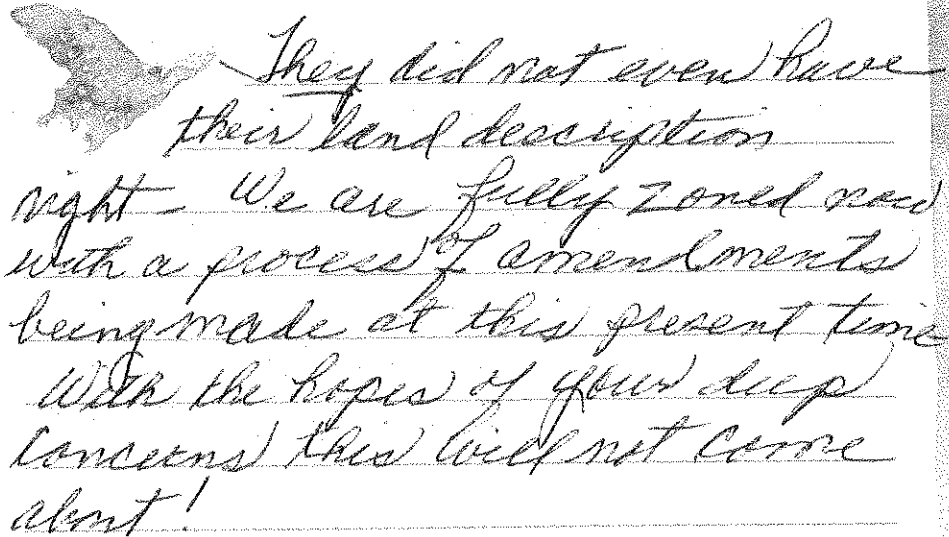 They did not even have
their land description
right - We are fully zoned now
with a process of amendments
being made at this present time
With the hopes of your deep
concerns this will not come
about!